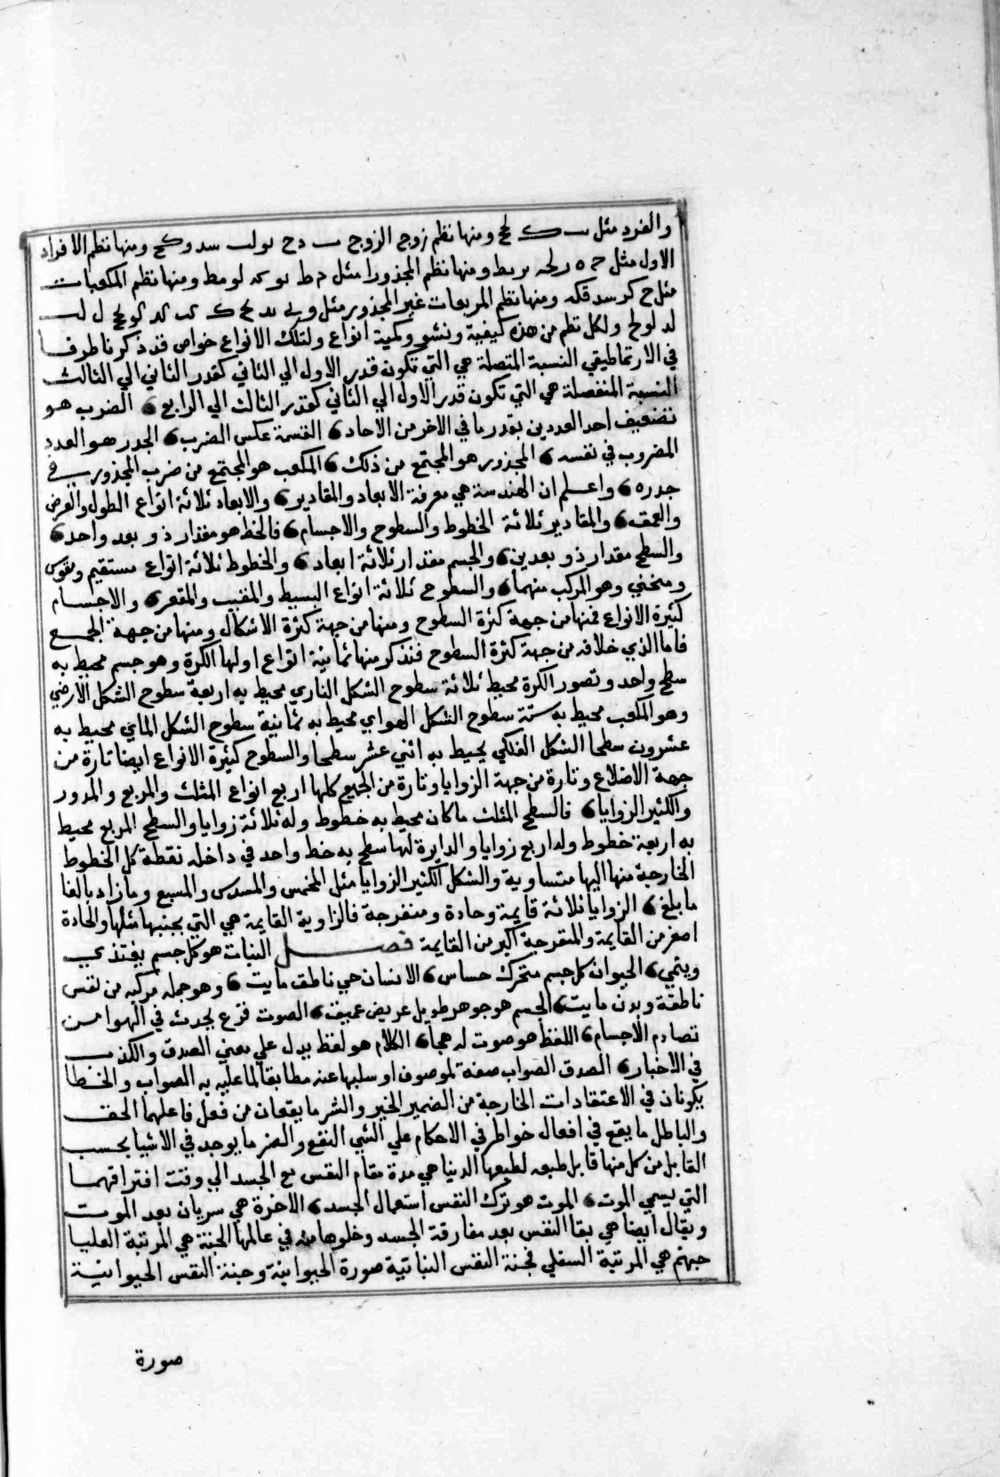 والفرد مثل ب ك لح ومنها نظم زوج الزوج ب د ح يو لب سد وكح ومنها نظم الافراد
الاول مثل ح ه ومنها نظم المجذورا مثل د ط يو كه لو مط ومنها نظم المكعبات
مثل ح كز سد قكه ومنها نظم المربعات غير المجذوره مثل و يب
لد لو لح ولكل نظم من هذه كيفية ونشو وكمية انواع ولتلك الانواع خواص قد ذكرنا طرفا
في الارتماطيقي النسبة المتصلة هي التي تكون قدر الاول الي الثاني كقدر الثاني الي الثالث
النسبة المنفصلة هي التي تكون قدر الاول الي الثاني كقدر الثالث الي الرابع الضرب هو
تضعيف احد العددين بقدر ما في الاخر من الاحاد القسمة عكس الضرب الجدر هو العدد
المضروب في نفسه المجذور هو المجتمع من ذلك المكعب هو المجتمع من ضرب المجذور في
جدره واعلم ان الهندسة هي معرفة الابعاد والمقادير والابعاد ثلاثة انواع الطول والعرض
والعمق والمقادير ثلاثة الخطوط والسطوح والاجسام فالخط هو مقدار ذو بعد واحد
والسطح مقدار ذو بعدين والجسم مقدار ثلاثة ابعاد والخطوط ثلاثة انواع مستقيم ومقوس
ومنحني وهو المركب منهما والسطوح ثلاثة انواع البسيط والمقبب والمقعر والاجسام
كثيرة الانواع فمنها من جهة كثرة السطوح ومنها من جهة كثرة الاشكال ومنها من جهة الجمع
فاما الذي خلافه من جهة كثرة السطوح فنذكر منها ثمانية انواع اولها الكرة وهو جسم محيط به
سطح واحد وتصور الكرة محيط ثلاثة سطوح الشكل الناري محيط به اربعة سطوح الشكل الارضي
وهو المكعب محيط به ستة سطوح الشكل الهواي محيط به ثمانية سطوح الشكل الماي محيط به
عشرون سطحا الشكل الفلكي يحيط به اثني عشر سطحا والسطوح كثيرة الانواع ايضا تارة من
جهة الاضلاع وتارة من جهة الزوايا وتارة من الجميع كلها اربع انواع المثلث والمربع والمدور
والكثير الزوايا فالسطح المثلث ما كان محيط به خطوط وله ثلاثة زوايا والسطح المربع محيط
به اربعة خطوط وله اربع زوايا والدايرة لها سطح به خط واحد في داخله نقطة كل الخطوط
الخارجة منها اليها متساوية والشكل الكثير الزوايا مثل المخمس والمسدس والمسبع وما زاد بالغا
ما بلغ الزوايا ثلاثة قايمة وحادة ومنفرجة فالزاوية القايمة هي التي بجنبها مثلها والحادة
اصغر من القايمة والمنفرجة اكبر من القايمة فصل النبات هو كل جسم يغتذي
وينمي الحيوان كل جسم متحرك حساس الانسان حي ناطق مايت وهو جملة مركبه من نفس
ناطقة وبدن مايت الجسم هو جوهر طويل عريض عميق الصوت قرع يحدث في الهوا من
تصادم الاجسام اللفظ هو صوت له هجا الكلام هو لفظ يدل علي معني الصدق والكذب
في الاخبار الصدق الصواب صفة لموصوف او سلبها عنه مطابقا لما عليه به الصواب والخطا
يكونان في الاعتقادات الخارجة من الضمير الخير والشر ما يقعان من فعل فاعلهما الحق
والباطل ما يقع في افعال خواطر في الاحكام علي الشي النفع والضر ما يوجد في الاشيا بحسب
القابل من كل منها قابل طبعه لطبعها الدنيا هي مدة مقام النفس مع الجسد الي وقت افتراقهما
التي يسمي الموت الموت هو ترك النفس استعمال الجسد الاخرة هي سريان بعد الموت
ويقال ايضا هي بقا النفس بعد مفارقة الجسد وخلوها منه في عالمها الجنة هي المرتبة العليا
جهنم هي المرتبة السفلي فجنة النفس النباتية صورة الحيوانية وجنة النفس الحيوانية
صورة